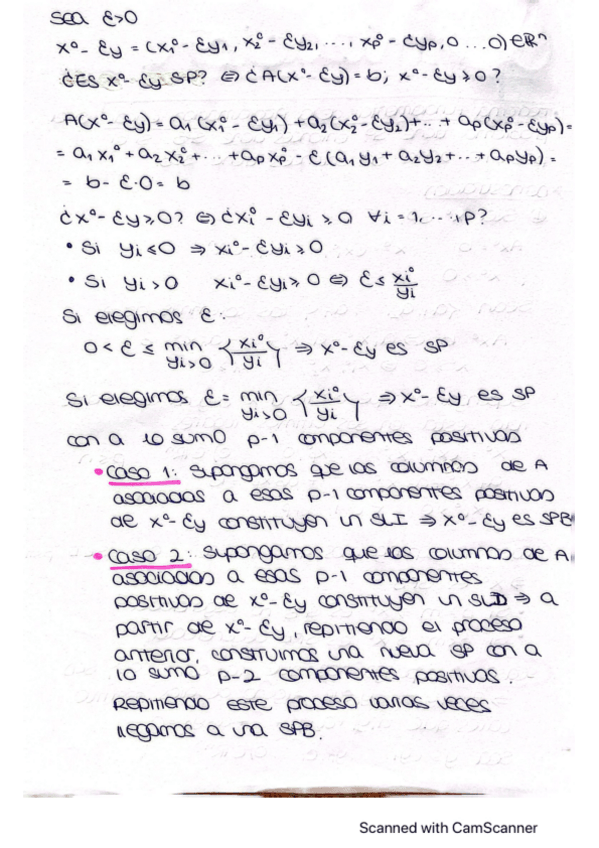 Sea ε>0
x⁰- εy = (x₁⁰- εy₁, x₂⁰- εy₂, ..., xp⁰- εyp, 0 ... 0) ∈ ℝⁿ
¿ES x⁰- εy SP? ⇔ ¿A(x⁰- εy)=b; x⁰- εy ≥0?
A(x⁰- εy) = a₁(x₁⁰- εy₁) + a₂(x₂⁰- εy₂)+...+ ap(xp⁰- εyp)=
= a₁x₁⁰+a₂x₂⁰+...+apxp⁰- ε(a₁y₁+a₂y₂+...+apyp)=
= b- ε·0= b
¿x⁰- εy≥0? ⇔ ¿xi⁰- εyi ≥ 0 ∀i=1,...,p?
• Si yi ≤0 ⇒ xi⁰- εyi ≥0
• Si yi >0 xi⁰- εyi ≥ 0 ⇔ ε≤ xi⁰/yi
Si elegimos ε:
0< ε ≤ min yi>0 {xi⁰/yi} ⇒ x⁰- εy es SP
Si elegimos ε= min yi>0 {xi⁰/yi} ⇒ x⁰- εy es SP
con a lo sumo p-1 componentes positivas
• Caso 1: Supongamos que las columnas de A
asociadas a esas p-1 componentes positivas
de x⁰- εy constituyen un SLI ⇒ x⁰- εy es SPB
• Caso 2: Supongamos que las columnas de A
asociadas a esas p-1 componentes
positivas de x⁰- εy constituyen un SLD ⇒ a
partir de x⁰- εy, repitiendo el proceso
anterior, construimos una nueva SP con a
lo sumo p-2 componentes positivas.
Repitiendo este proceso varias veces
llegamos a una SPB.
Scanned with CamScanner